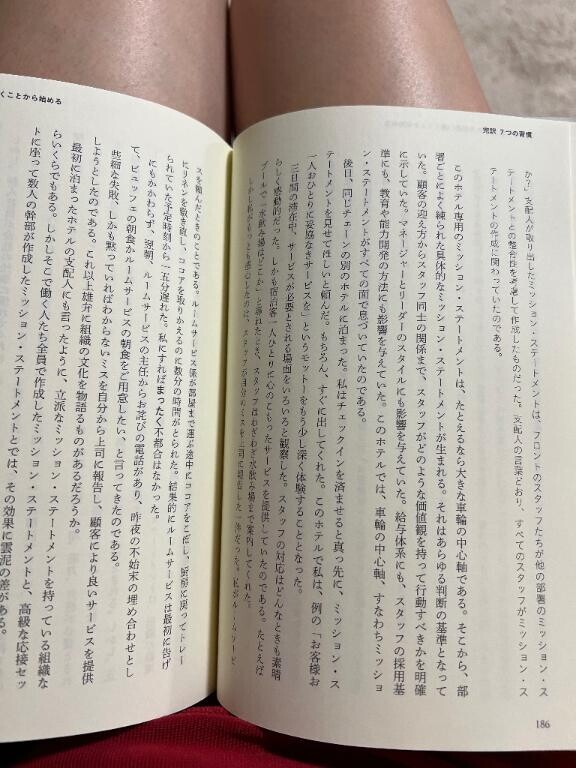 完訳 7つの習慣
か?」支配人が取り出したミッション・ステートメントは、フロントのスタッフたちが他の部署のミッション・ス
テートメントとの整合性を考慮して作成したものだった。支配人の言葉どおり、すべてのスタッフがミッション・ス
テートメントの作成に関わっていたのである。
このホテル専用のミッション・ステートメントは、たとえるなら大きな車輪の中心軸である。そこから、部
署ごとによく練られた具体的なミッション・ステートメントが生まれる。それはあらゆる判断の基準となって
いた。顧客の迎え方からスタッフ同士の関係まで、スタッフがどのような価値観を持って行動すべきかを明確
に示していた。マネージャーとリーダーのスタイルにも影響を与えていた。給与体系にも、スタッフの採用基
準にも、教育や能力開発の方法にも影響を与えていた。このホテルでは、車輪の中心軸、すなわちミッショ
ン・ステートメントがすべての面で息づいていたのである。
後日、同じチェーンの別のホテルに泊まった。私はチェックインを済ませると真っ先に、ミッション・ス
テートメントを見せてほしいと頼んだ。もちろん、すぐに出してくれた。このホテルで私は、例の「お客様お
一人おひとりに妥協なきサービスを」というモットーをもう少し深く体験することとなった。
三日間の滞在中、サービスが必要とされる場面をいろいろと観察した。スタッフの対応はどんなときも素晴
らしく感動的だった。しかも宿泊客一人ひとりに心のこもったサービスを提供していたのである。たとえば
プールで「水飲み場はどこか」と尋ねたとき、スタッフはわざわざ水飲み場まで案内してくれた。
しかし私がもっとも感心したのは、スタッフが自分のミスを上司に報告した一件だった。私がルームサービ
186
くことから始める
スを頼んだときのことである。ルームサービス係が部屋まで運ぶ途中にココアをこぼし、厨房に戻ってトレー
にリネンを敷き直し、ココアを取りかえるのに数分の時間がとられた。結果的にルームサービスは最初に告げ
られていた予定時刻から一五分遅れた。私にすればまったく不都合はなかった。
にもかかわらず、翌朝、ルームサービスの主任からお詫びの電話があり、昨夜の不始末の埋め合わせとし
て、ビュッフェの朝食かルームサービスの朝食をご用意したい、と言ってきたのである。
些細な失敗、しかも黙っていればわからないミスを自分から上司に報告し、顧客により良いサービスを提供
しようとしたのである。これ以上雄弁に組織の文化を物語るものがあるだろうか。
最初に泊まったホテルの支配人にも言ったように、立派なミッション・ステートメントを持っている組織な
らいくらでもある。しかしそこで働く人たち全員で作成したミッション・ステートメントと、高級な応接セッ
トに座って数人の幹部が作成したミッション・ステートメントとでは、その効果に雲泥の差がある。